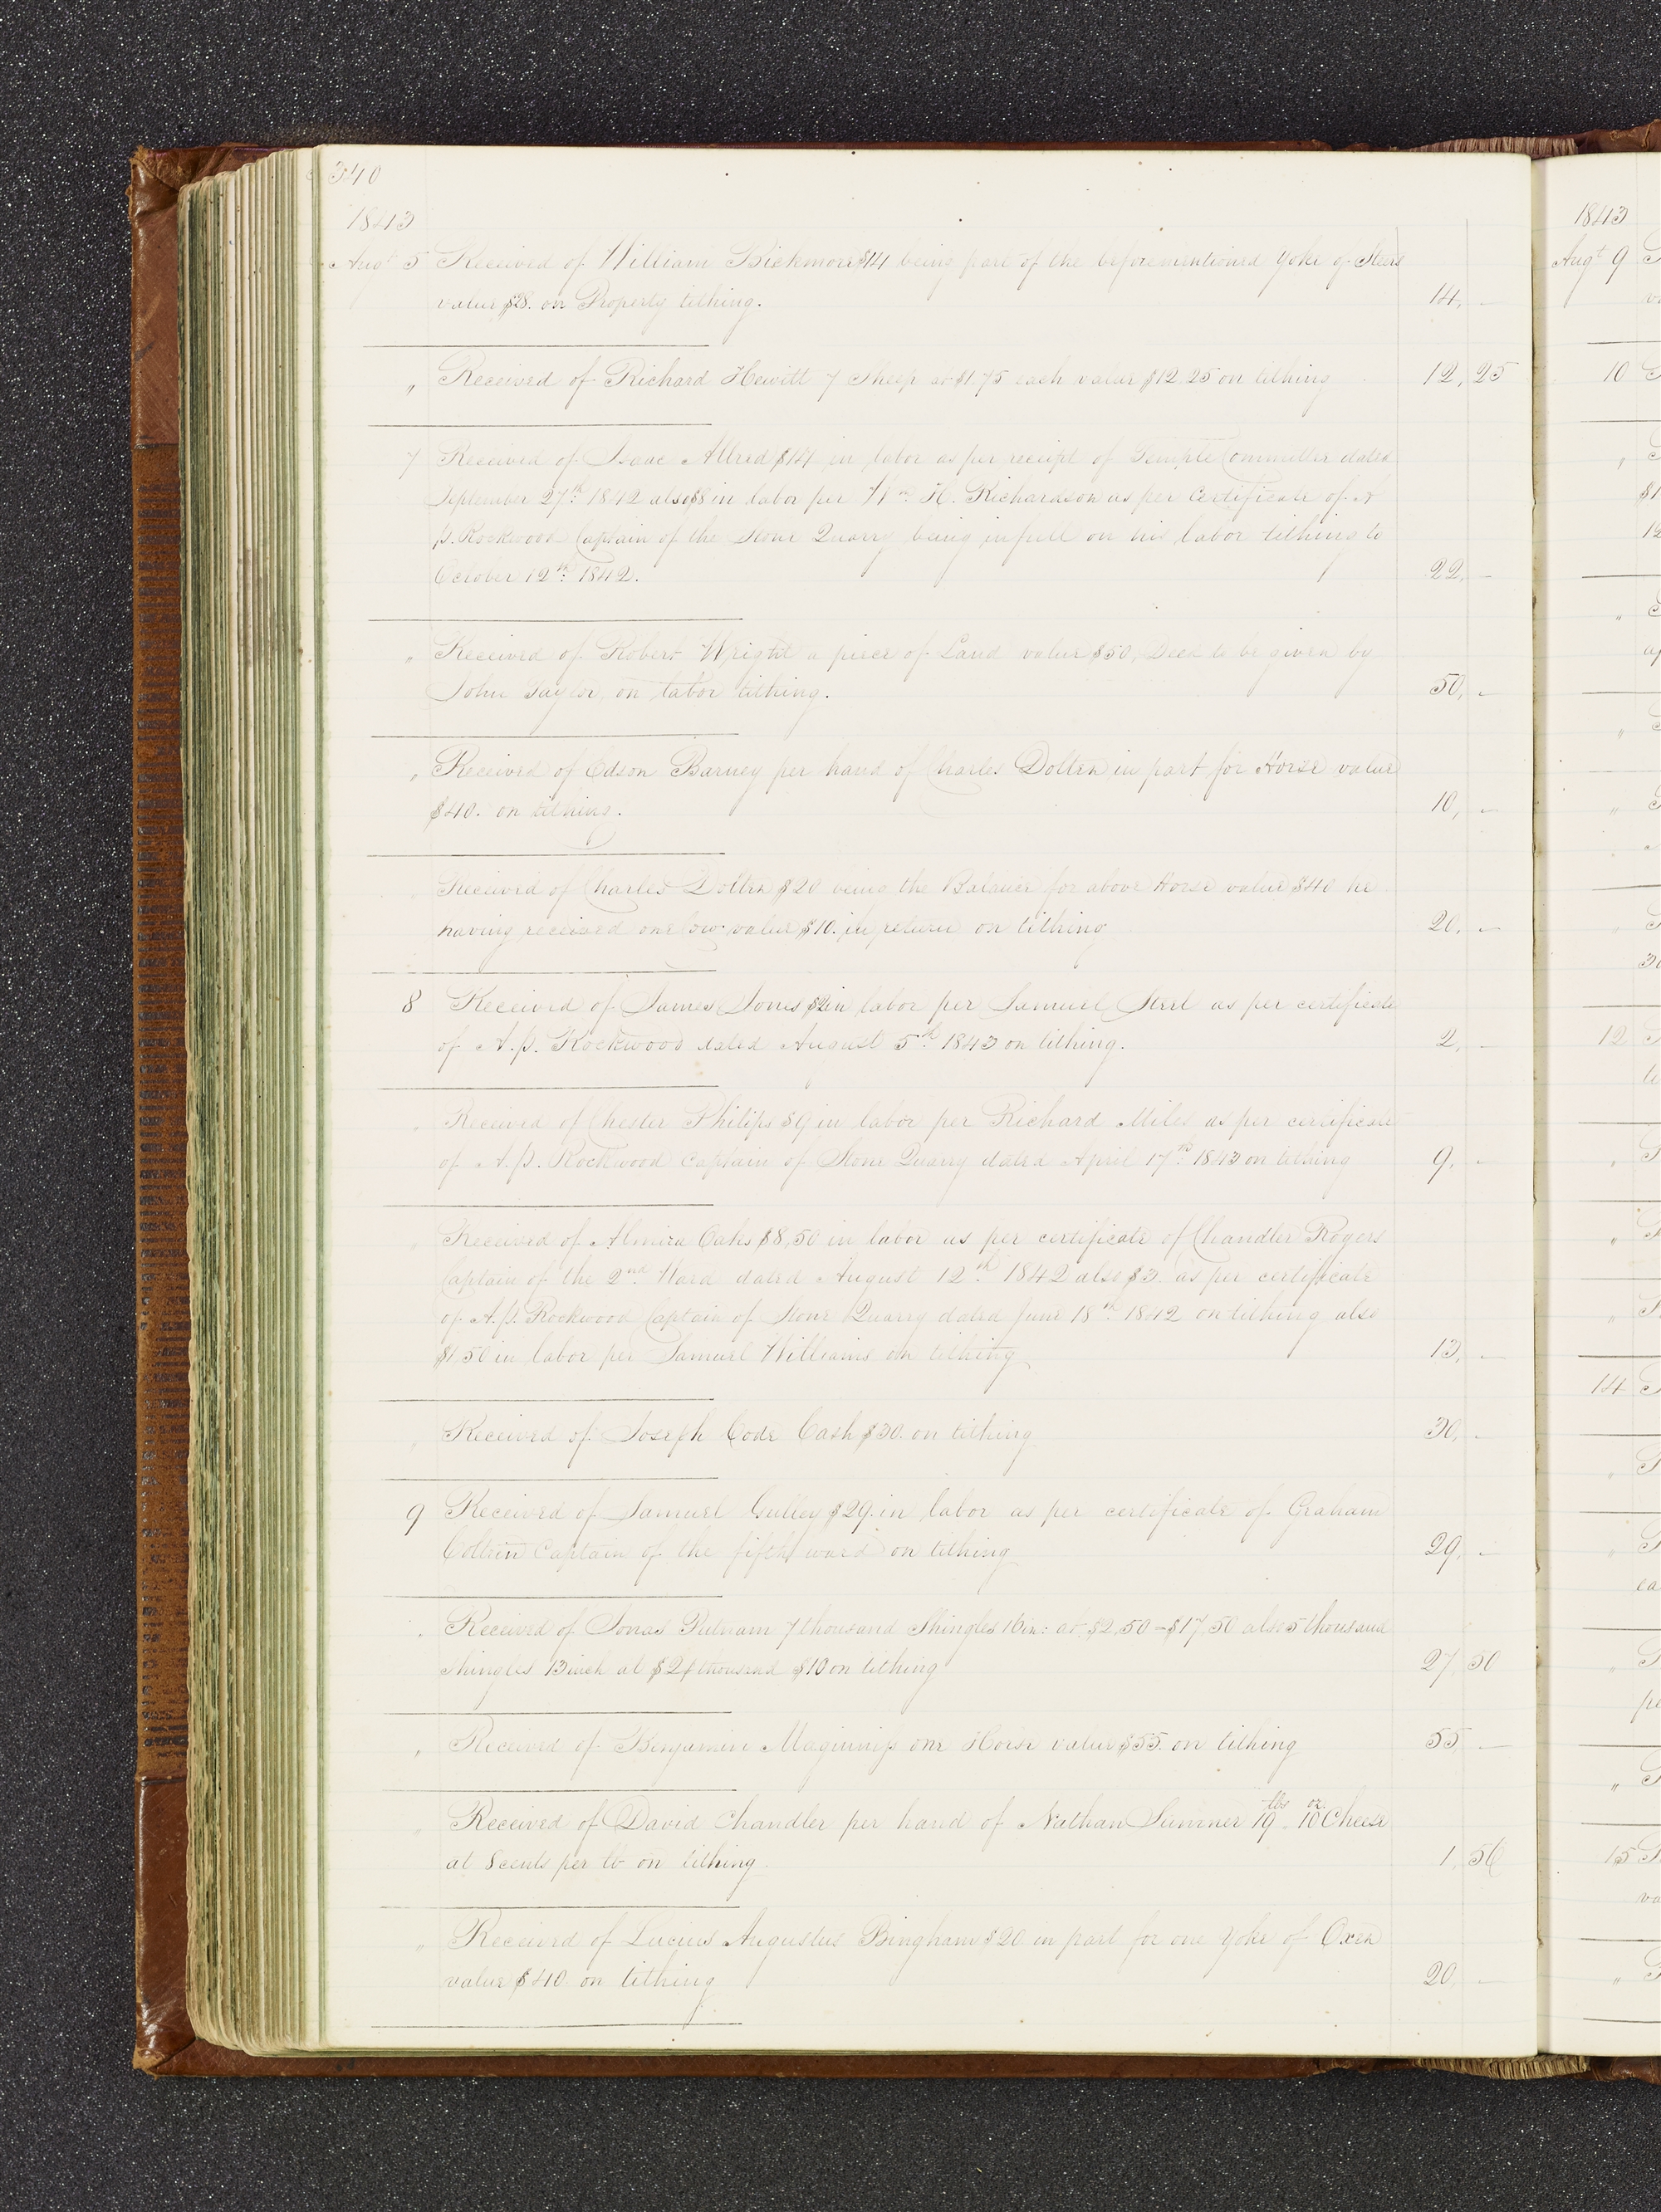 340
1843
Augt 5 Received of William Bickmore $14 being part of the beforementioned Yoke of Steers
value $28. on Property tithing. 14, -
" Received of Richard Hewitt 7 Sheep at $1.75 each value $12.25 on tithing 12, 25
7 Received of Isaac Allred $14 in labor as per receipt of Temple Committee dated
September 27th 1842 also $8 in labor per Wm H. Richardson as per Certificate of A
P. Rockwood Captain of the Stone Quarry being in full on his labor tithing to
October 12th 1842. 22, -
" Received of Robert Wright a piece of Land value $50, Deed to be given by
John Taylor, on labor tithing. 50, -
" Received of Edson Barney per hand of Charles Dolten in part for Horse value
$40. on tithing. 10, -
" Received of Charles Dolten $20 being the Balance for above Horse value $40 he
having received one Cow value $10. in return on tithing 20, -
8 Received of James Jones $2 in labor per Samuel Steel as per certificate
of A. P. Rockwood dated August 5th 1843 on tithing. 2, -
" Received of Chester Philips $9 in labor per Richard Miles as per certificate
of A. P. Rockwood Captain of Stone Quarry dated April 17th 1843 on tithing 9, -
" Received of Almira Oaks $8,50 in labor as per certificate of Chandler Rogers
Captain of the 2nd Ward dated August 12th 1842 also $3. as per certificate
of A. P. Rockwood Captain of Stone Quarry dated June 18th 1842 on tithing also
$1 50 in labor per Samuel Williams on tithing 13, -
" Received of Joseph Code Cash $30. on tithing 30, -
9 Received of Samuel Gulley $29. in labor as per certificate of Graham
Coltrin Captain of the fifth ward on tithing 29, -
" Received of Jonas Putnam 7 thousand Shingles 16 in: at $2,50 - $17,50 also 5 thousand
shingles 13 inch at $2 p thousand $10 on tithing 27, 50
" Received of Benjamin Maginniss one Horse value $55. on tithing 55 -
" Received of David Chandler per hand of Nathan Sumner 19 lbs 10 oz. Cheese
at 8 cents per lb on tithing 1, 56
" Received of Lucius Augustus Bingham $20 in part for one Yoke of Oxen
value $40 on tithing 20, -
1843
Augt 9
10
"
$1
12
"
"
"
"
30
12
"
"
"
14
"
"
ea
"
"
15
"